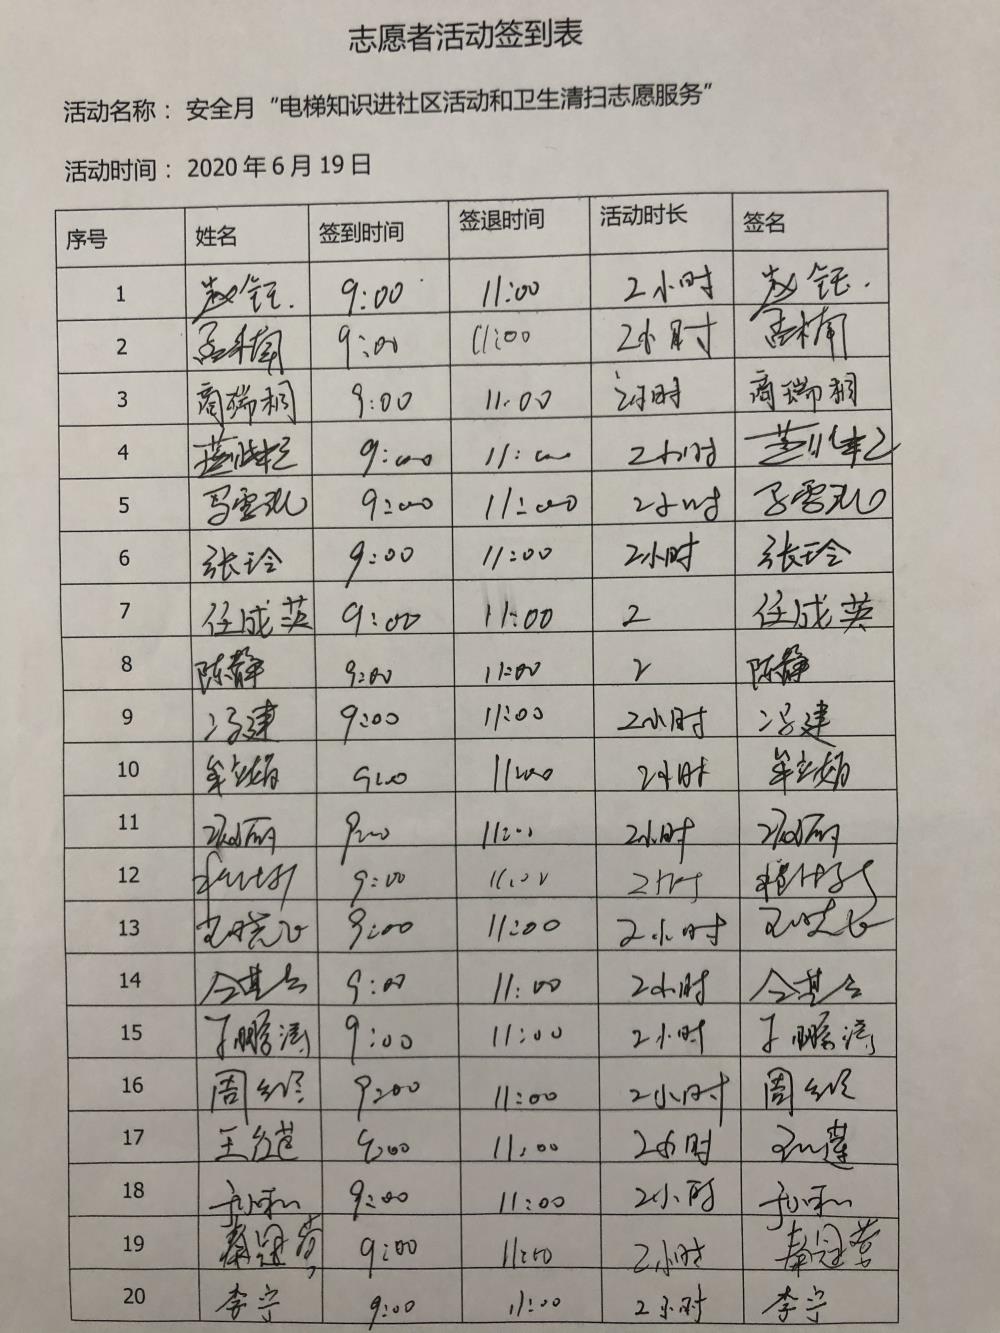 志愿者活动签到表
活动名称： 安全月“电梯知识进社区活动和卫生清扫志愿服务”
活动时间： 2020 年 6 月 19 日
序号 姓名 签到时间 签退时间 活动时长 签名
1 赵钰. 9:00 11:00 2小时 赵钰.
2 9:00 11:00 2小时
3 商瑞桐 9:00 11:00 2小时 商瑞桐
4 9:00 11:00 2小时
5 马雪 9:00 11:00 2小时 马雪
6 张玲 9:00 11:00 2小时 张玲
7 任成英 9:00 11:00 2 任成英
8 陈静 9:00 11:00 2 陈静
9 冯建 9:00 11:00 2小时 冯建
10 牟立娟 9:00 11:00 2小时 牟立娟
11 9:00 11:00 2小时
12 9:00 11:00 2小时
13 王晓飞 9:00 11:00 2小时 王晓飞
14 9:00 11:00 2小时
15 于鹏涛 9:00 11:00 2小时 于鹏涛
16 周 9:00 11:00 2小时 周
17 王 9:00 11:00 2小时 王 莲
18 9:00 11:00 2小时
19 秦冠营 9:00 11:00 2小时 秦冠营
20 李宁 9:00 11:00 2小时 李宁